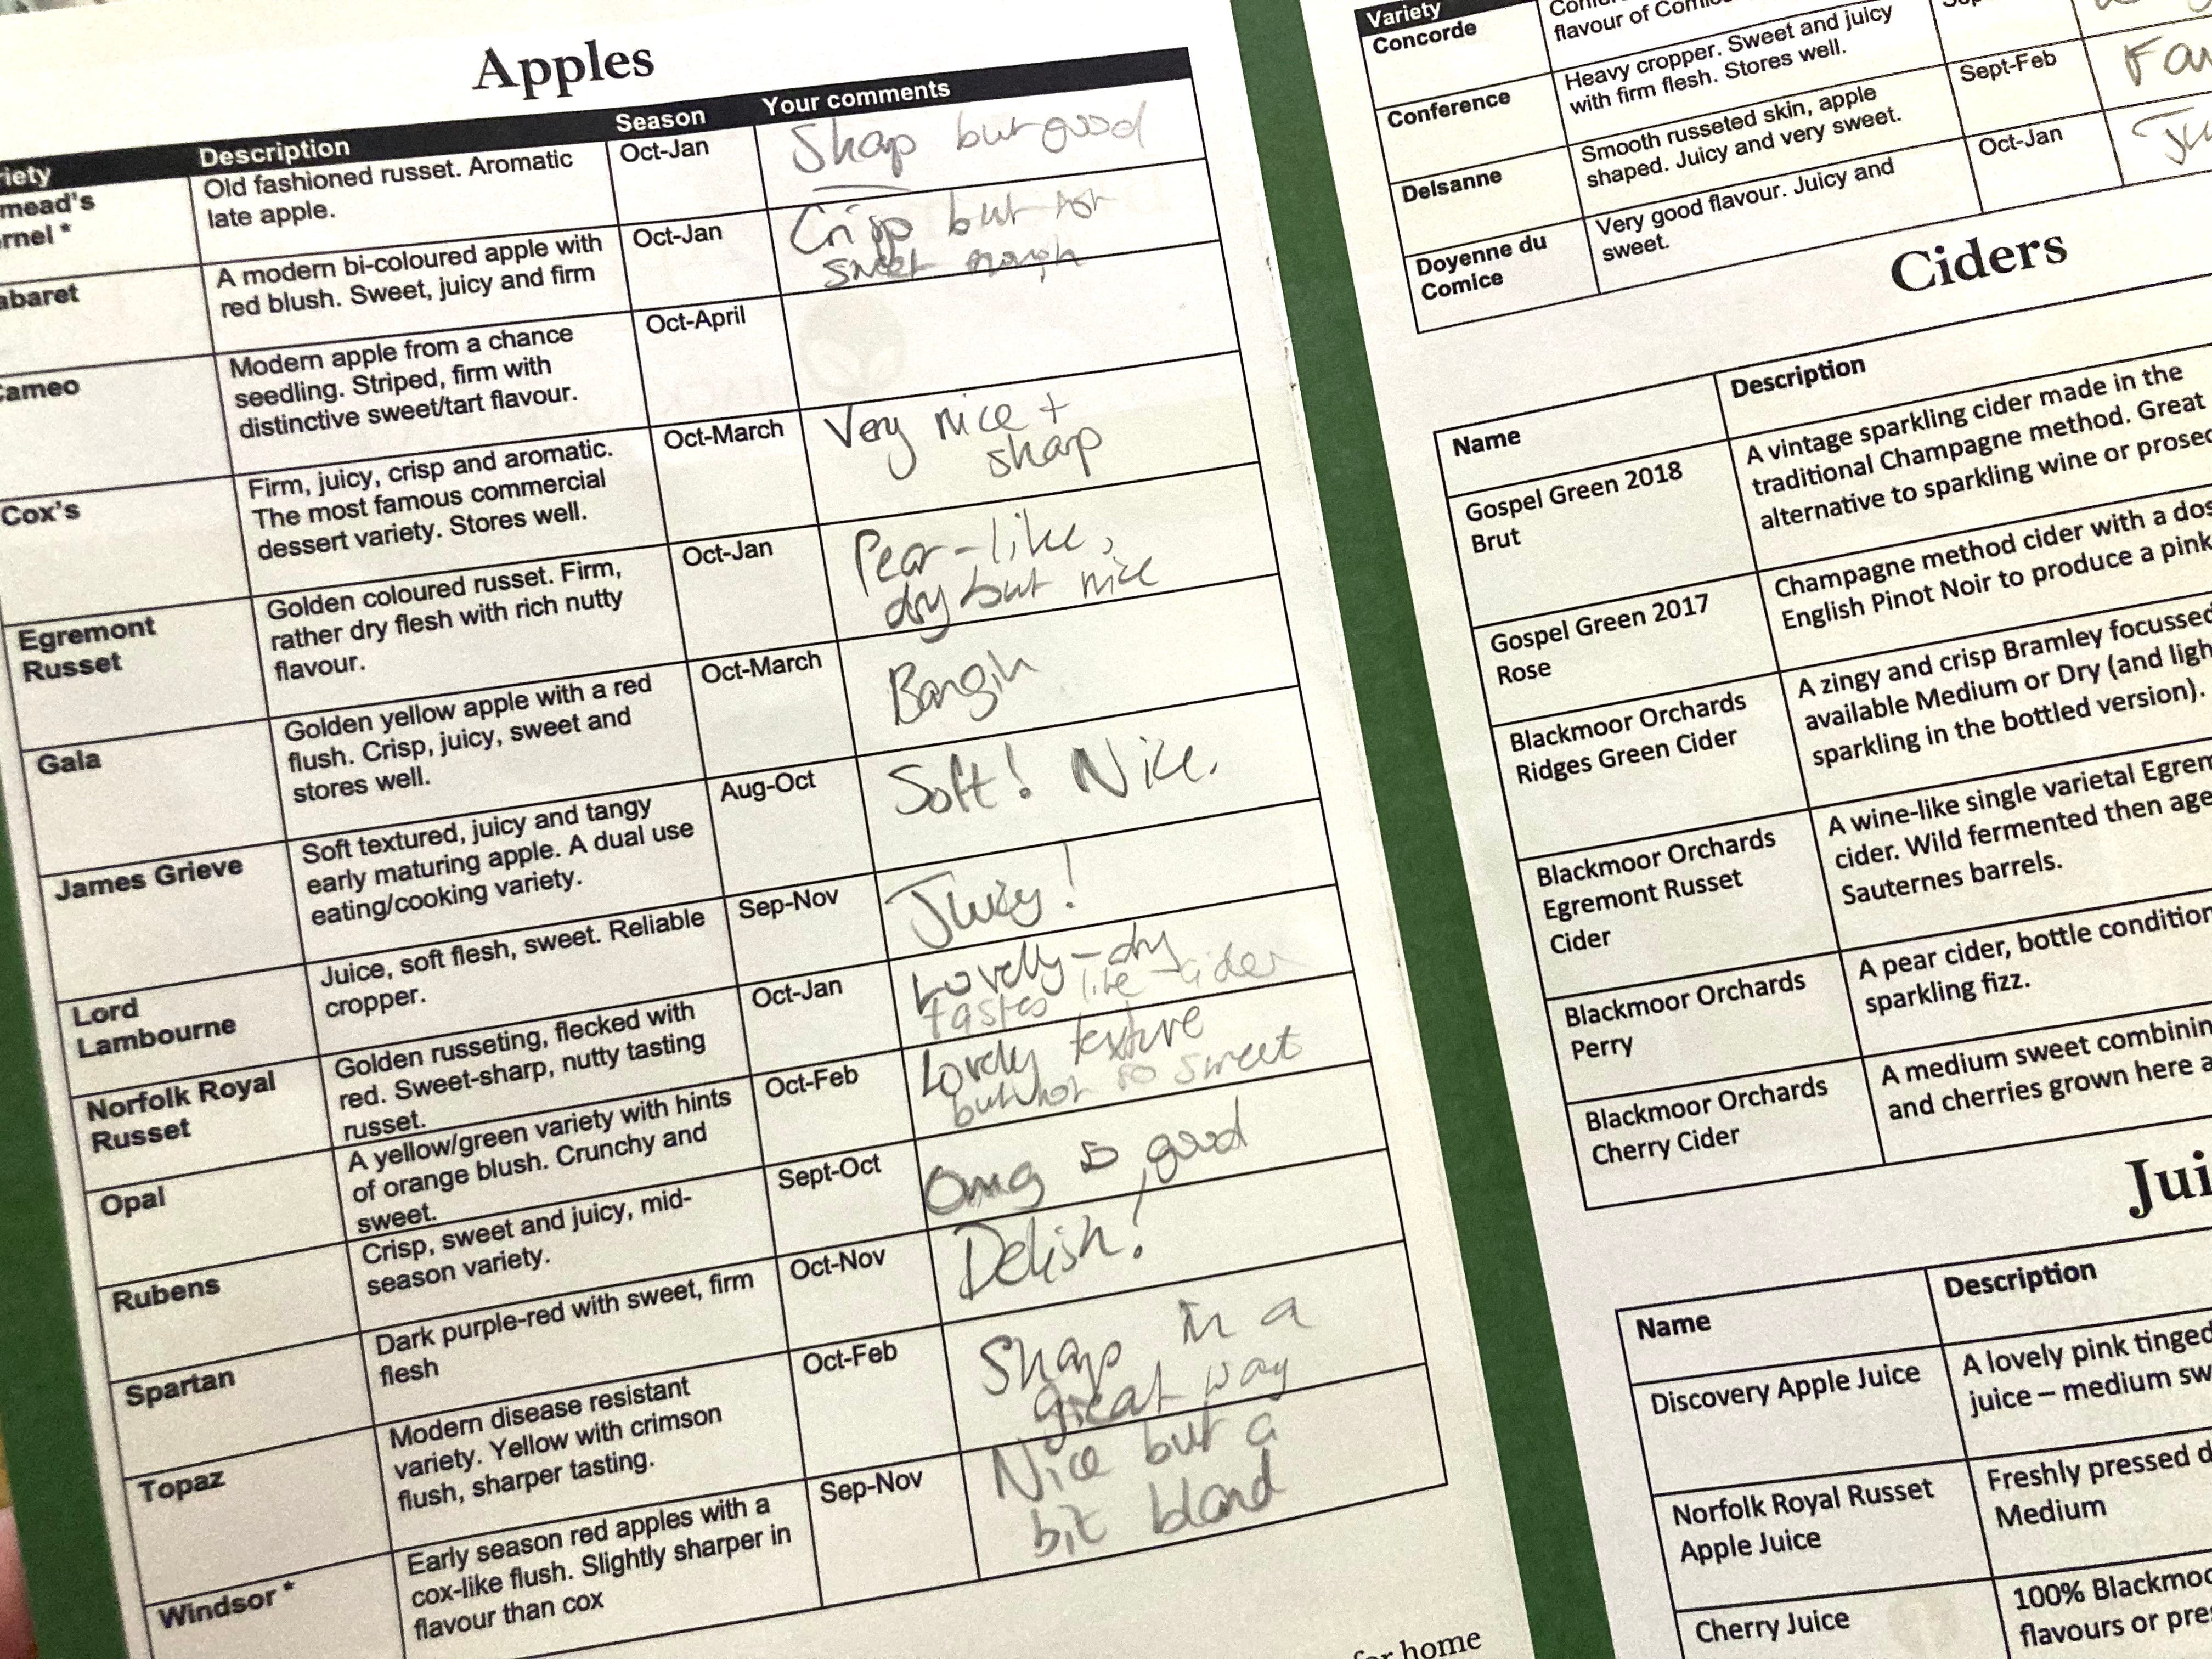 Apples
Description Season Your comments
Old fashioned russet. Aromatic
late apple.
Oct-Jan
Shap but good
A modern bi-coloured apple with
red blush. Sweet, juicy and firm
Oct-Jan
Crisp but not
sweet enough
Cameo
Modern apple from a chance
seedling. Striped, firm with
distinctive sweet/tart flavour.
Oct-April
Cox's
Firm, juicy, crisp and aromatic.
The most famous commercial
dessert variety. Stores well.
Oct-March
Very nice +
sharp
Egremont
Russet
Golden coloured russet. Firm,
rather dry flesh with rich nutty
flavour.
Oct-Jan
Pear-like,
dry but nice
Gala
Golden yellow apple with a red
flush. Crisp, juicy, sweet and
stores well.
Oct-March
Bangin
James Grieve
Soft textured, juicy and tangy
early maturing apple. A dual use
eating/cooking variety.
Aug-Oct
Soft! Nice.
Lord
Lambourne
Juice, soft flesh, sweet. Reliable
cropper.
Sep-Nov
Juicy!
Norfolk Royal
Russet
Golden russeting, flecked with
red. Sweet-sharp, nutty tasting
russet.
Oct-Jan
Lovely - dry
tastes like cider
Opal
A yellow/green variety with hints
of orange blush. Crunchy and
sweet.
Oct-Feb
Lovely texture
but not so sweet
Rubens
Crisp, sweet and juicy, mid-
season variety.
Sept-Oct
Omg so good
Spartan
Dark purple-red with sweet, firm
flesh
Oct-Nov
Delish!
Topaz
Modern disease resistant
variety. Yellow with crimson
flush, sharper tasting.
Oct-Feb
Sharp in a
great way
Windsor *
Early season red apples with a
cox-like flush. Slightly sharper in
flavour than cox
Sep-Nov
Nice but a
bit bland
for home
Variety
Concorde
flavour of
Conference
Heavy cropper. Sweet and juicy
with firm flesh. Stores well.
Delsanne
Smooth russeted skin, apple
shaped. Juicy and very sweet.
Sept-Feb
Doyenne du
Comice
Very good flavour. Juicy and
sweet.
Oct-Jan
Ciders
Name Description
Gospel Green 2018
Brut
A vintage sparkling cider made in the
traditional Champagne method. Great
alternative to sparkling wine or
Gospel Green 2017
Rose
Champagne method cider with a
English Pinot Noir to produce a pink
Blackmoor Orchards
Ridges Green Cider
A zingy and crisp Bramley focussed
available Medium or Dry (and
sparkling in the bottled version).
Blackmoor Orchards
Egremont Russet
Cider
A wine-like single varietal
cider. Wild fermented then
Sauternes barrels.
Blackmoor Orchards
Perry
A pear cider, bottle
sparkling fizz.
Blackmoor Orchards
Cherry Cider
A medium sweet
and cherries grown here
Name Description
Discovery Apple Juice
A lovely pink tinged
juice – medium
Norfolk Royal Russet
Apple Juice
Freshly pressed
Medium
Cherry Juice
100%
flavours or